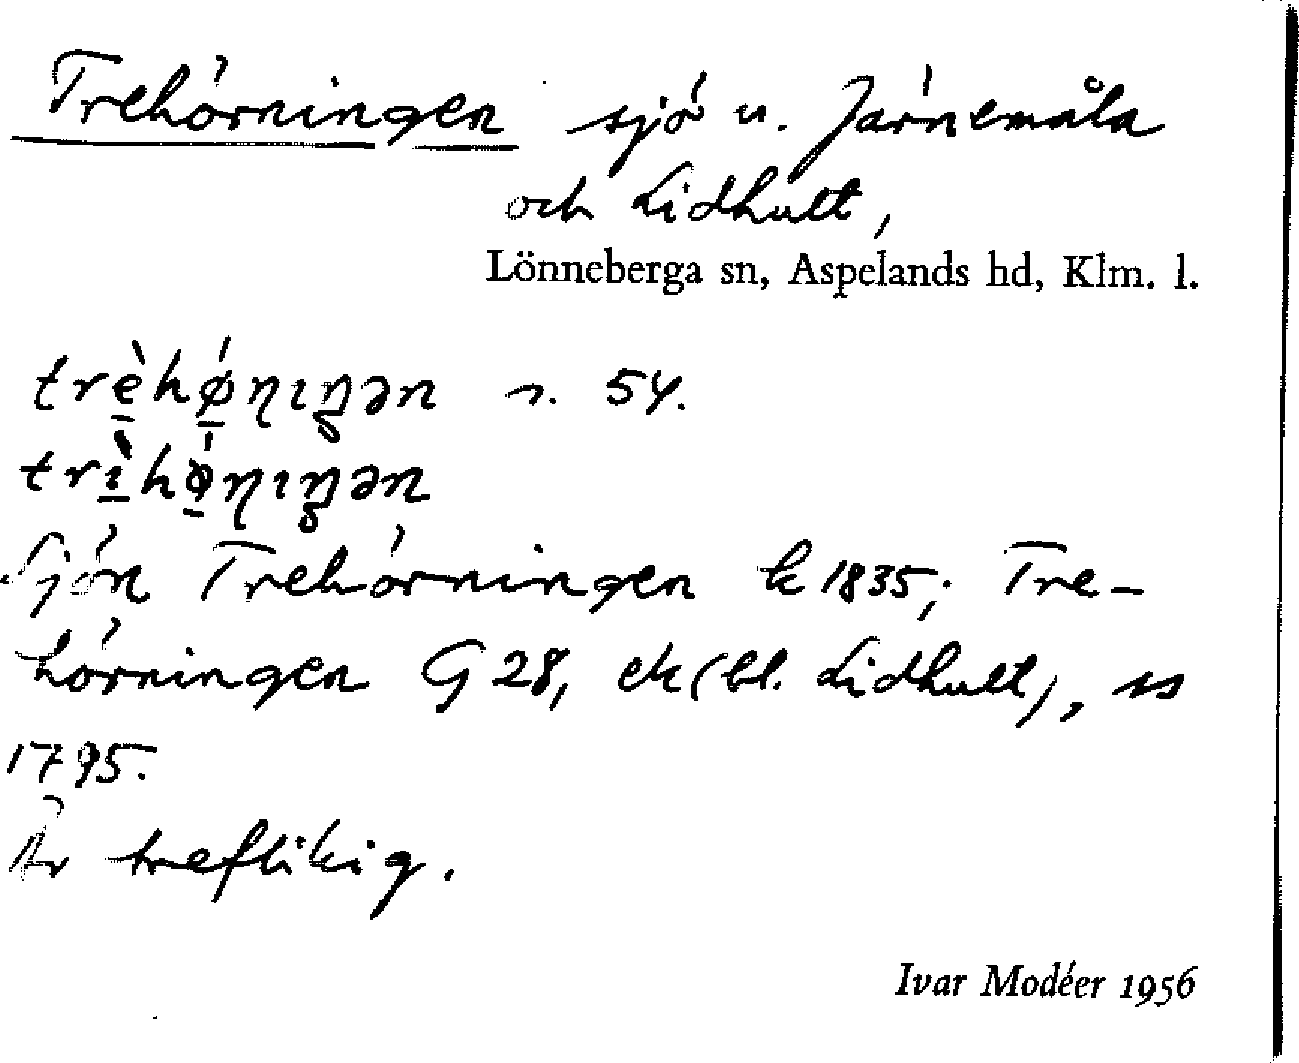 Trehörningen sjö u. Järnemåla
och Lidhult,
Lönneberga sn, Aspelands hd, Klm. l.
trè̱hǿ̱ɳɩŋən s. 54.
trɩ̱̀hǿ̱ɳɩŋən
Sjön Trehörningen k 1835; Tre-
hörningen G 28, ek (bl. Lidhult), ss
1795.
Är treflikig.
Ivar Modéer 1956